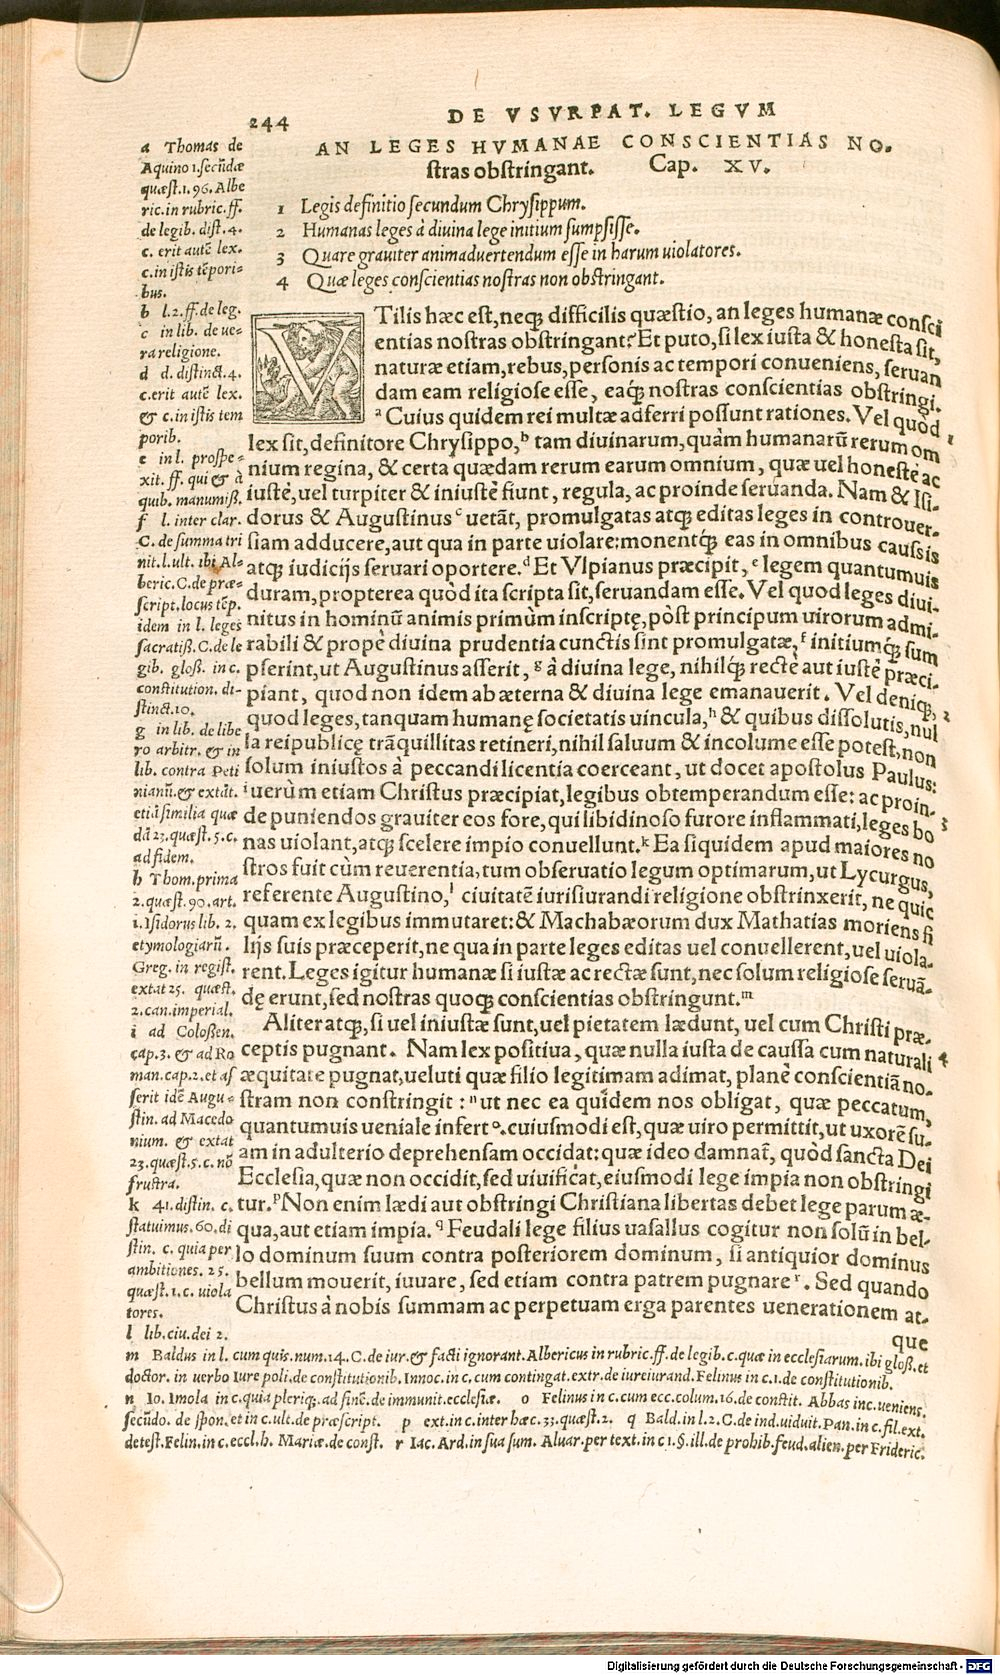 244
DE VSVRPAT. LEGVM
AN LEGES HVMANAE CONSCIENTIAS NO-
stras obstringant. Cap. XV.
1 Legis definitio secundum Chrysippum.
2 Humanas leges à diuina lege initium sumpsisse.
3 Quare grauiter animaduertendum esse in harum uiolatores.
4 Quæ leges conscientias nostras non obstringant.
VTilis hæc est, neq; difficilis quæstio, an leges humanæ consci
entias nostras obstringant? Et puto, si lex iusta & honesta sit,
naturæ etiam, rebus, personis ac tempori conueniens, seruan
dam eam religiose esse, eaq; nostras conscientias obstringi.
a Cuius quidem rei multæ adferri possunt rationes. Vel quòd
lex sit, definitore Chrysippo, b tam diuinarum, quàm humanarũ rerum om 1
nium regina, & certa quædam rerum earum omnium, quæ uel honestè ac
iustè, uel turpiter & iniustè fiunt, regula, ac proinde seruanda. Nam & Isi-
dorus & Augustinus c uetãt, promulgatas atq; editas leges in controuer-
siam adducere, aut qua in parte uiolare: monentq́; eas in omnibus caussis
atq; iudicijs seruari oportere. d Et Vlpianus præcipit, e legem quantumuis
duram, propterea quòd ita scripta sit, seruandam esse. Vel quod leges diui-
nitus in hominũ animis primùm inscriptę, pòst principum uirorum admi-
rabili & propè diuina prudentia cunctis sint promulgatæ, f initiumq́; sum
pserint, ut Augustinus asserit, g à diuina lege, nihilq́; rectè aut iustè præci-
piant, quod non idem ab æterna & diuina lege emanauerit. Vel deniq;, 2
quod leges, tanquam humanę societatis uincula, h & quibus dissolutis, nul
la reipublicę trãquillitas retineri, nihil saluum & incolume esse potest, non
solum iniustos à peccandi licentia coerceant, ut docet apostolus Paulus:
i uerùm etiam Christus præcipiat, legibus obtemperandum esse: ac proin-
de puniendos grauiter eos fore, qui libidinoso furore inflammati, leges bo 3
nas uiolant, atq; scelere impio conuellunt. k Ea siquidem apud maiores no
stros fuit cùm reuerentia, tum obseruatio legum optimarum, ut Lycurgus,
referente Augustino, l ciuitatẽ iurisiurandi religione obstrinxerit, ne quic
quam ex legibus immutaret: & Machabæorum dux Mathatias moriens fi
lijs suis præceperit, ne qua in parte leges editas uel conuellerent, uel uiola-
rent. Leges igitur humanæ si iustæ ac rectæ sunt, nec solum religiose seruã-
dę erunt, sed nostras quoq; conscientias obstringunt. m
Aliter atq;, si uel iniustæ sunt, uel pietatem lædunt, uel cum Christi præ-
ceptis pugnant. Nam lex positiua, quæ nulla iusta de caussa cum naturali 4
æquitate pugnat, ueluti quæ filio legitimam adimat, planè conscientiã no-
stram non constringit: n ut nec ea quidem nos obligat, quæ peccatum,
quantumuis ueniale infert o. cuiusmodi est, quæ uiro permittit, ut uxorẽ su-
am in adulterio deprehensam occidat: quæ ideo damnat, quòd sancta Dei
Ecclesia, quæ non occidit, sed uiuificat, eiusmodi lege impia non obstringi
tur. p Non enim lædi aut obstringi Christiana libertas debet lege parum æ-
qua, aut etiam impia. q Feudali lege filius uasallus cogitur non solũ in bel-
lo dominum suum contra posteriorem dominum, si antiquior dominus
bellum mouerit, iuuare, sed etiam contra patrem pugnare r. Sed quando
Christus à nobis summam ac perpetuam erga parentes uenerationem at-
que
a Thomas de
Aquino 1. secũdæ
quæst. 1. 96. Albe
ric. in rubric. ff.
de legib. dist. 4.
c. erit autẽ lex.
c. in istis tẽpori-
bus.
b l. 2. ff. de leg.
c in lib. de ue-
ra religione.
d d. distinct. 4.
c. erit autẽ lex.
& c. in istis tem
porib.
e in l. prospe-
xit. ff. qui & à
quib. manumiß.
f l. inter clar.
C. de summa tri
nit. l. ult. ibi Al-
beric. C. de præ-
script. locus tẽp.
idem in l. leges
sacratiß. C. de le
gib. gloß. in c.
constitution. di-
stinct. 10.
g in lib. de libe
ro arbitr. & in
lib. contra Peti
nianũ. & extãt.
etiã similia quæ
dã 23. quæst. 5. c.
ad fidem.
h Thom. prima
2. quæst. 90. art.
1. Isidorus lib. 2.
etymologiarũ.
Greg. in regist.
extat 25. quæst.
2. can. imperial.
i ad Coloßen.
cap. 3. & ad Ro
man. cap. 2. et as
serit idẽ Augu-
stin. ad Macedo
nium. & extat
23. quæst. 5. c. nõ
frustra.
k 41. distin. c.
statuimus. 60. di
stin. c. quia per
ambitiones. 25.
quæst. 1. c. uiola
tores.
l lib. ciu. dei 2.
m Baldus in l. cum quis. num. 14. C. de iur. & facti ignorant. Albericus in rubric. ff. de legib. c. quæ in ecclesiarum. ibi gloß. et
doctor. in uerbo Iure poli. de constitutionib. Innoc. in c. cum contingat. extr. de iureiurand. Felinus in c. 1. de constitutionib.
n Io. Imola in c. quia pleriq;. ad finẽ. de immunit. ecclesiæ. o Felinus in c. cum ecc. colum. 16. de constit. Abbas in c. ueniens.
secũdo. de spon. et in c. ult. de præscript. p ext. in c. inter hæc. 33. quæst. 2. q Bald. in l. 2. C. de ind. uiduit. Pan. in c. fil. ext.
de test. Felin. in c. eccl. h. Mariæ. de const. r Iac. Ard. in sua sum. Aluar. per text. in c 1. §. ill. de prohib. feud. alien. per Frideric.
Digitalisierung gefördert durch die Deutsche Forschungsgemeinschaft - DFG